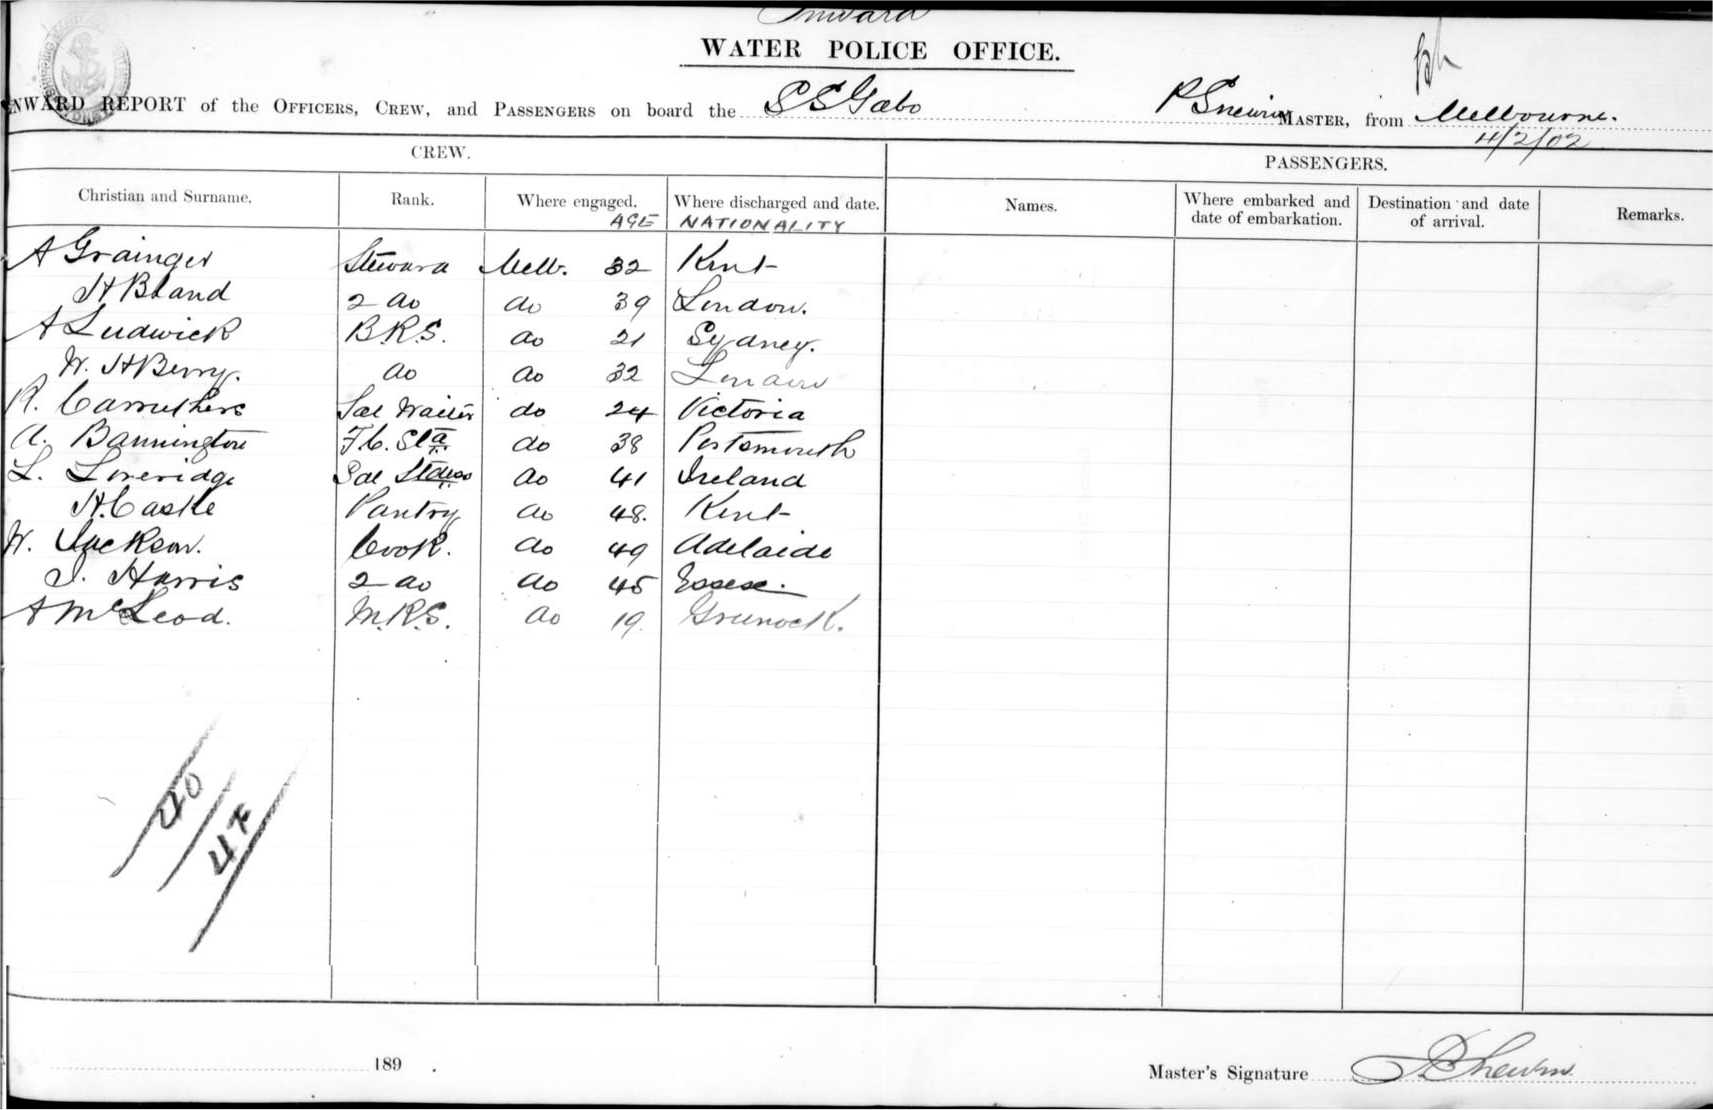 Inward
WATER POLICE OFFICE.
INWARD REPORT of the OFFICERS, CREW, and PASSENGERS on board the S S Gabo MASTER, from Melbourne.
4/2/02
CREW. PASSENGERS.
Christian and Surname. Rank. Where engaged. Where discharged and date. Names. Where embarked and date of embarkation. Destination and date of arrival. Remarks.
AGE NATIONALITY
A Grainger Steward Melb. 32 Kent
H Bland 2 do do 39 London.
A Ludwick B.R.S. do 21 Sydney.
W. H Berry. do do 32 London
R. Carruthers Sal Waiter do 24 Victoria
A. Bannington F.C. Std do 38 Portsmouth
L. Loveridge Sal Stdess do 41 Ireland
H. Castle Pantry do 48. Kent
W. Jackson. Cook. do 49 Adelaide
J. Harris 2 do do 45 Essex.
A McLeod. M.R.S. do 19. Greenock.
40
47
189 .
Master's Signature